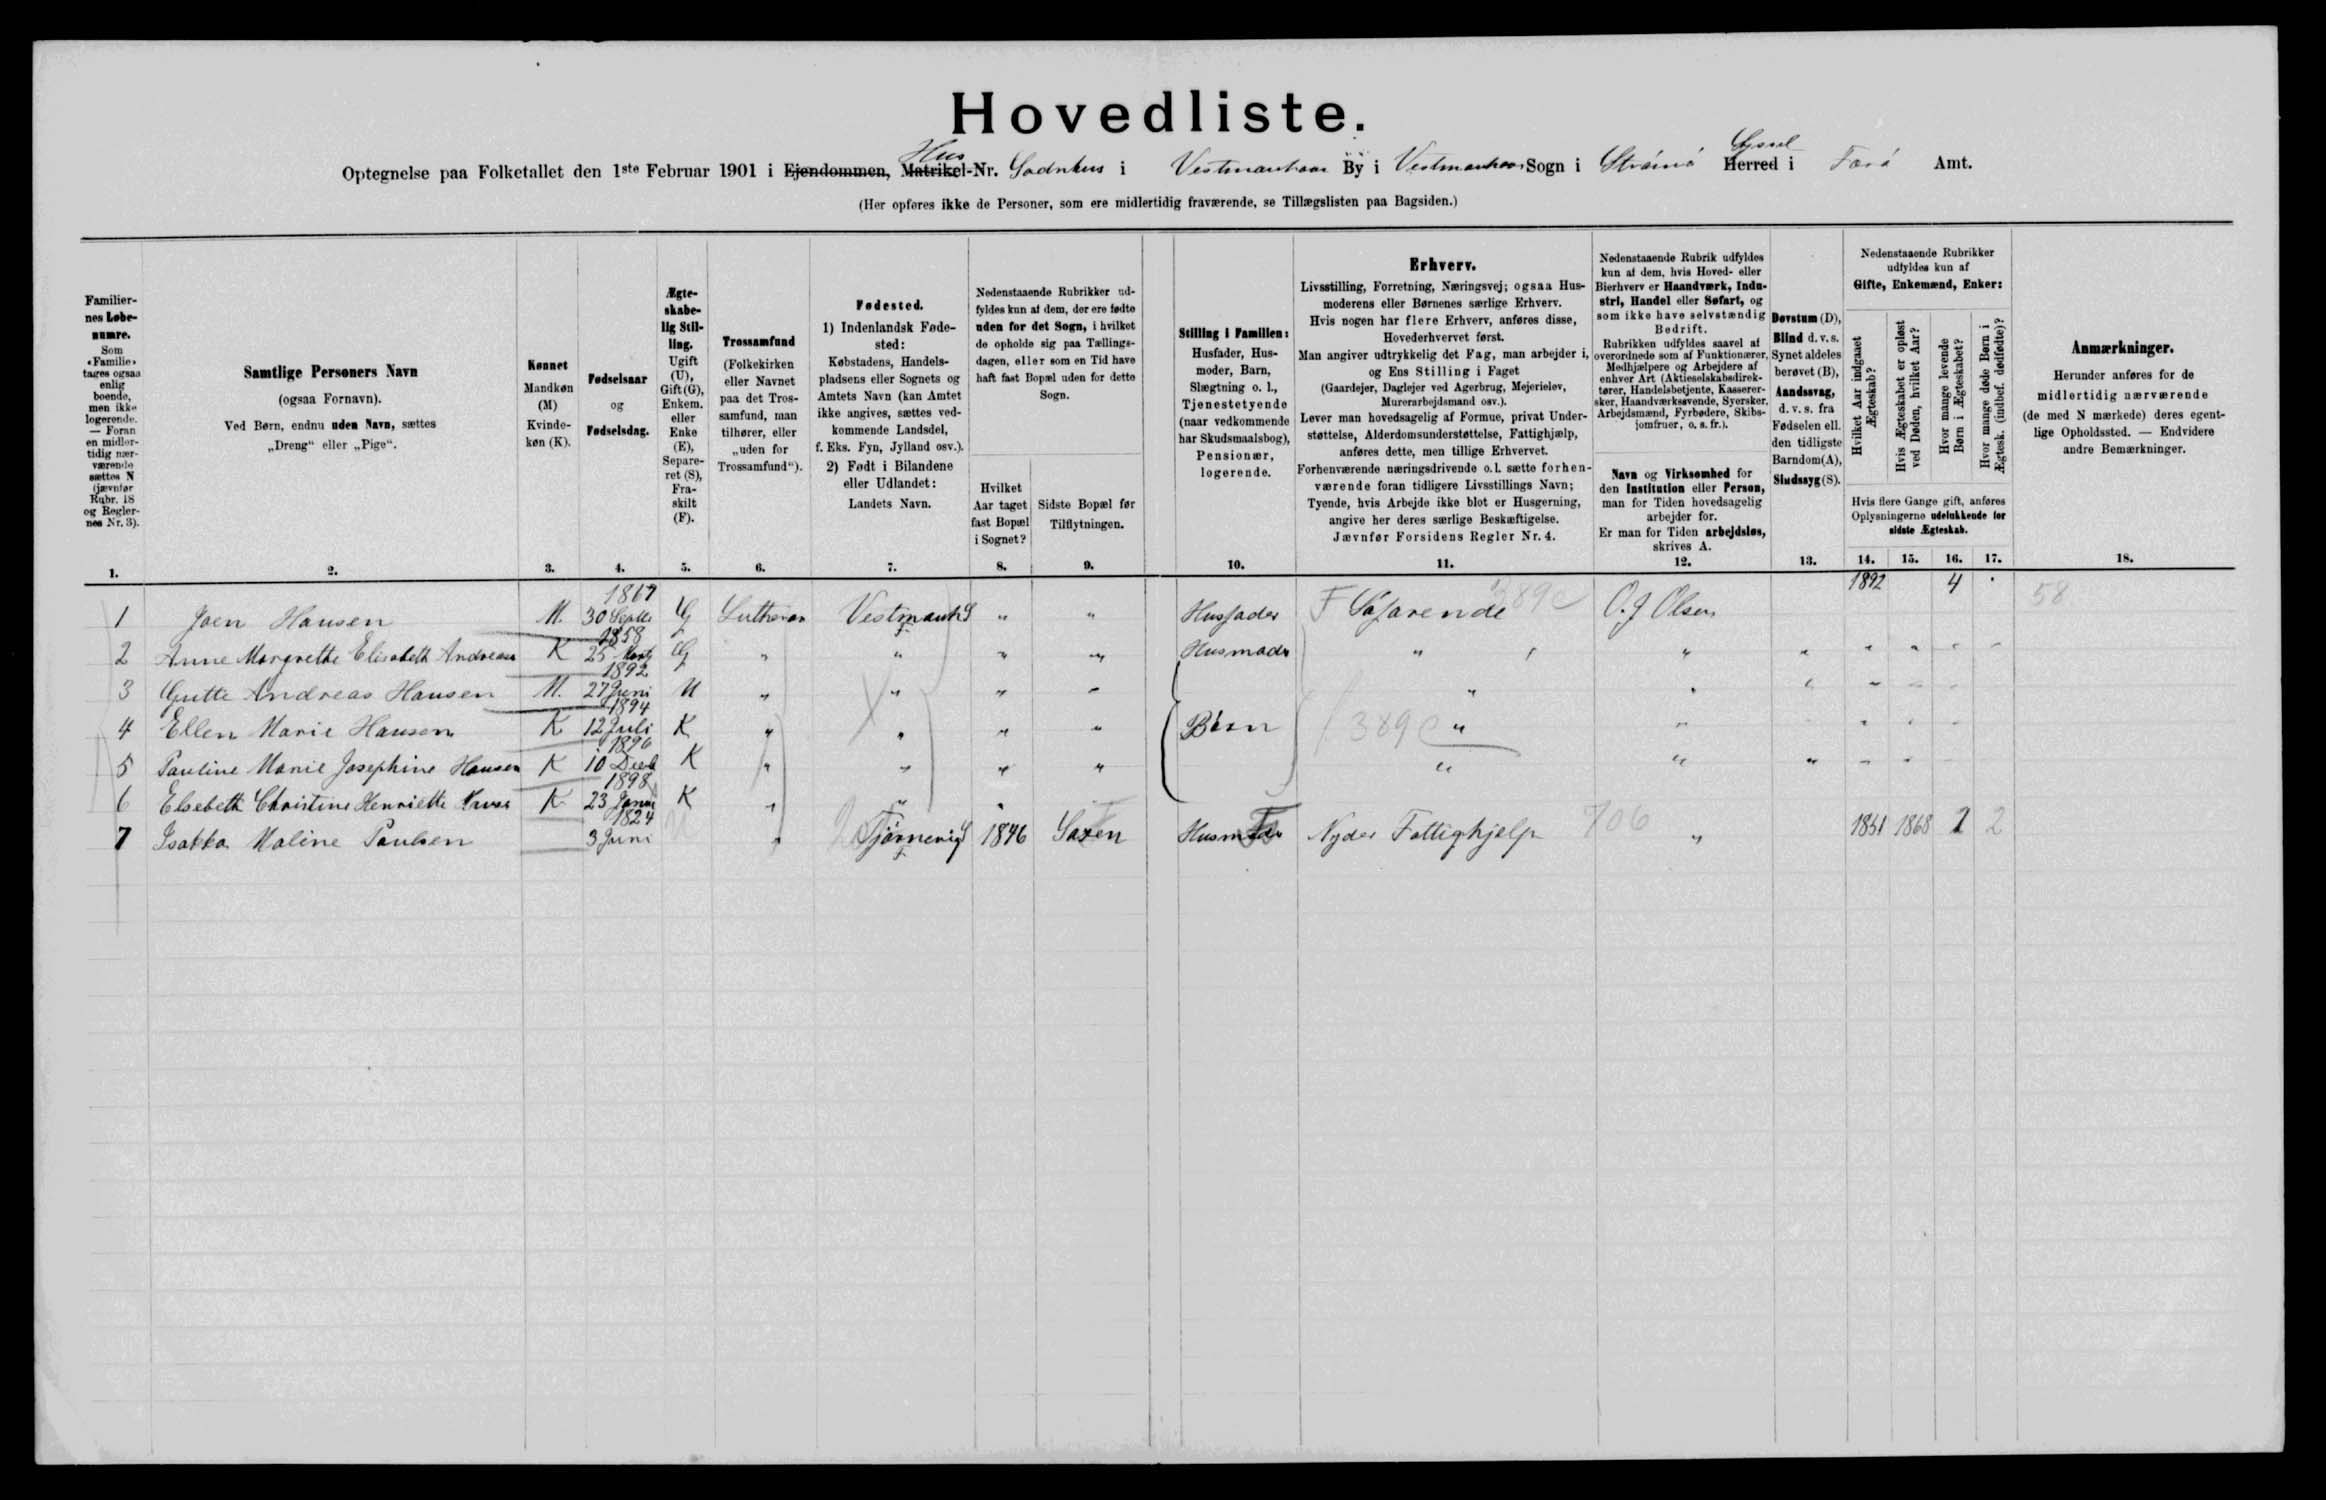 Hovedliste.
Hus Syssel
Optegnelse paa Folketallet den 1ste Februar 1901 i Ejendommen, Matrikel-Nr. i Vestmanhavn By i Vestmanhavn Sogn i Strömö Herred i Færö Amt.
(Her opføres ikke de Personer, som ere midlertidig fraværende, se Tillægslisten paa Bagsiden.)
Familier-
nes Løbe-
numre.
Som
«Familie»
tages ogsaa
enlig
boende,
men ikke
logerende.
— Foran
en midler-
tidig nær-
værende
sættes N
(jævnfør
Rubr. 18
og Regler-
nes Nr. 3).
1.
Samtlige Personers Navn
(ogsaa Fornavn).
Ved Børn, endnu uden Navn, sættes
„Dreng“ eller „Pige“.
2.
Kønnet
Mandkøn
(M)
Kvinde-
køn (K).
3.
Fødselsaar
og
Fødselsdag.
4.
Ægte-
skabe-
lig Stil-
ling.
Ugift
(U),
Gift (G),
Enkem.
eller
Enke
(E),
Separe-
ret (S),
Fra-
skilt
(F).
5.
Trossamfund
(Folkekirken
eller Navnet
paa det Tros-
samfund, man
tilhører, eller
„uden for
Trossamfund“).
6.
Fødested.
1) Indenlandsk Føde-
sted:
Købstadens, Handels-
pladsens eller Sognets og
Amtets Navn (kan Amtet
ikke angives, sættes ved-
kommende Landsdel,
f. Eks. Fyn, Jylland osv.).
2) Født i Bilandene
eller Udlandet:
Landets Navn.
7.
Nedenstaaende Rubrikker ud-
fyldes kun af dem, der ere fødte
uden for det Sogn, i hvilket
de opholde sig paa Tællings-
dagen, eller som en Tid have
haft fast Bopæl uden for dette
Sogn.
Hvilket
Aar taget
fast Bopæl
i Sognet?
8.
Sidste Bopæl før
Tilflytningen.
9.
Stilling i Familien:
Husfader, Hus-
moder, Barn,
Slægtning o. l.,
Tjenestetyende
(naar vedkommende
har Skudsmaalsbog),
Pensionær,
logerende.
10.
Erhverv.
Livsstilling, Forretning, Næringsvej; ogsaa Hus-
moderens eller Børnenes særlige Erhverv.
Hvis nogen har flere Erhverv, anføres disse,
Hovederhvervet først.
Man angiver udtrykkelig det Fag, man arbejder i,
og Ens Stilling i Faget
(Gaardejer, Daglejer ved Agerbrug, Mejerielev,
Murerarbejdsmand osv.).
Lever man hovedsagelig af Formue, privat Under-
støttelse, Alderdomsunderstøttelse, Fattighjælp,
anføres dette, men tillige Erhvervet.
Forhenværende næringsdrivende o. l. sætte forhen-
værende foran tidligere Livsstillings Navn;
Tyende, hvis Arbejde ikke blot er Husgerning,
angive her deres særlige Beskæftigelse.
Jævnfør Forsidens Regler Nr. 4.
11.
Nedenstaaende Rubrik udfyldes
kun af dem, hvis Hoved- eller
Bierhverv er Haandværk, Indu-
stri, Handel eller Søfart, og
som ikke have selvstændig
Bedrift.
Rubrikken udfyldes saavel af
overordnede som af Funktionærer,
Medhjælpere og Arbejdere af
enhver Art (Aktieselskabsdirek-
tører, Handelsbetjente, Kasserer-
sker, Haandværkssvende, Syersker,
Arbejdsmænd, Fyrbødere, Skibs-
jomfruer, o. s. fr.).
Navn og Virksomhed for
den Institution eller Person,
man for Tiden hovedsagelig
arbejder for.
Er man for Tiden arbejdsløs,
skrives A.
12.
Døvstum (D),
Blind d. v. s.
Synet aldeles
berøvet (B),
Aandssvag,
d. v. s. fra
Fødselen ell.
den tidligste
Barndom (A),
Sindssyg (S).
13.
Nedenstaaende Rubrikker
udfyldes kun af
Gifte, Enkemænd, Enker:
Hvilket Aar indgaaet
Ægteskab?
Hvis Ægteskabet er opløst
ved Døden, hvilket Aar?
Hvor mange levende
Børn i Ægteskabet?
Hvor mange døde Børn i
Ægtesk. (indbef. dødfødte)?
Hvis flere Gange gift, anføres
Oplysningerne udelukkende for
sidste Ægteskab.
14. 15. 16. 17.
Anmærkninger.
Herunder anføres for de
midlertidig nærværende
(de med N mærkede) deres egent-
lige Opholdssted. — Endvidere
andre Bemærkninger.
18.
1 Joen Hansen M. 1867 30 Septb G Lutheran Vestmanh " " Husfader F Søfarende 389c O. J Olsen 1892 4 58
2 Anne Margrethe Elisabeth Andreasen K 1858 25 Marts G " " " " Husmoder " "
3 Gutte Andreas Hansen M. 1892 27 Juni U " " " " "
4 Ellen Marie Hansen K 1894 12 Juli K " " " " Børn 389c "
5 Pauline Marie Josephine Hansen K 1896 10 Decb K " " " " "
6 Elsebeth Christine Henriette Hansen K 1898 23 Janu K " "
7 Isakka Maline Paulsen 1824 3 Juni " Tjørnevig 1896 Saxen Nyder Fattighjelp 706 " 1851 1868 2